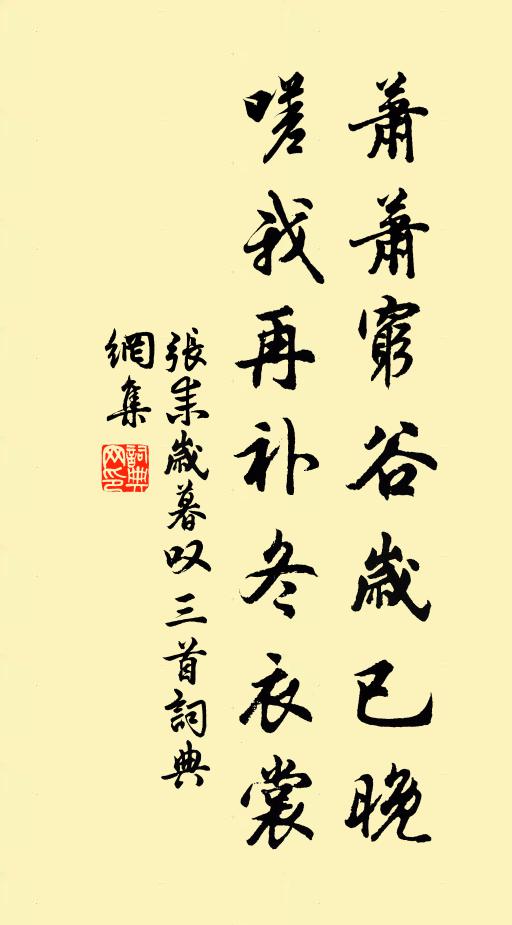 蕭蕭窮谷歲已晚
嗟我再补冬衣裳
張耒歲暮叹三首詞典
網集
詞典网印